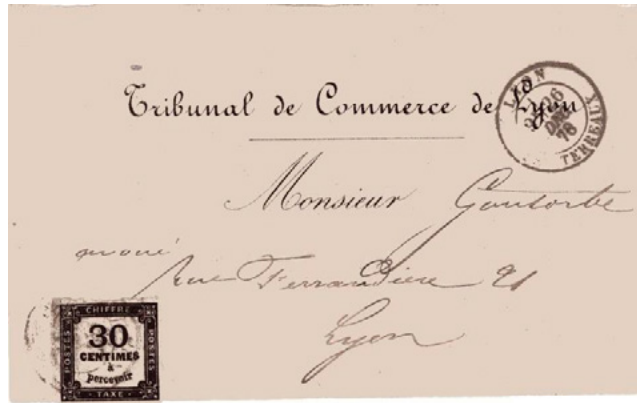 Tribunal de Commerce de Lyon
LYON
26
DÉC
76
TERREAUX
Monsieur
Rue Ferrandière 21
Lyon
CHIFFRE
POSTES
30
CENTIMES
à
percevoir
POSTES
TAXE